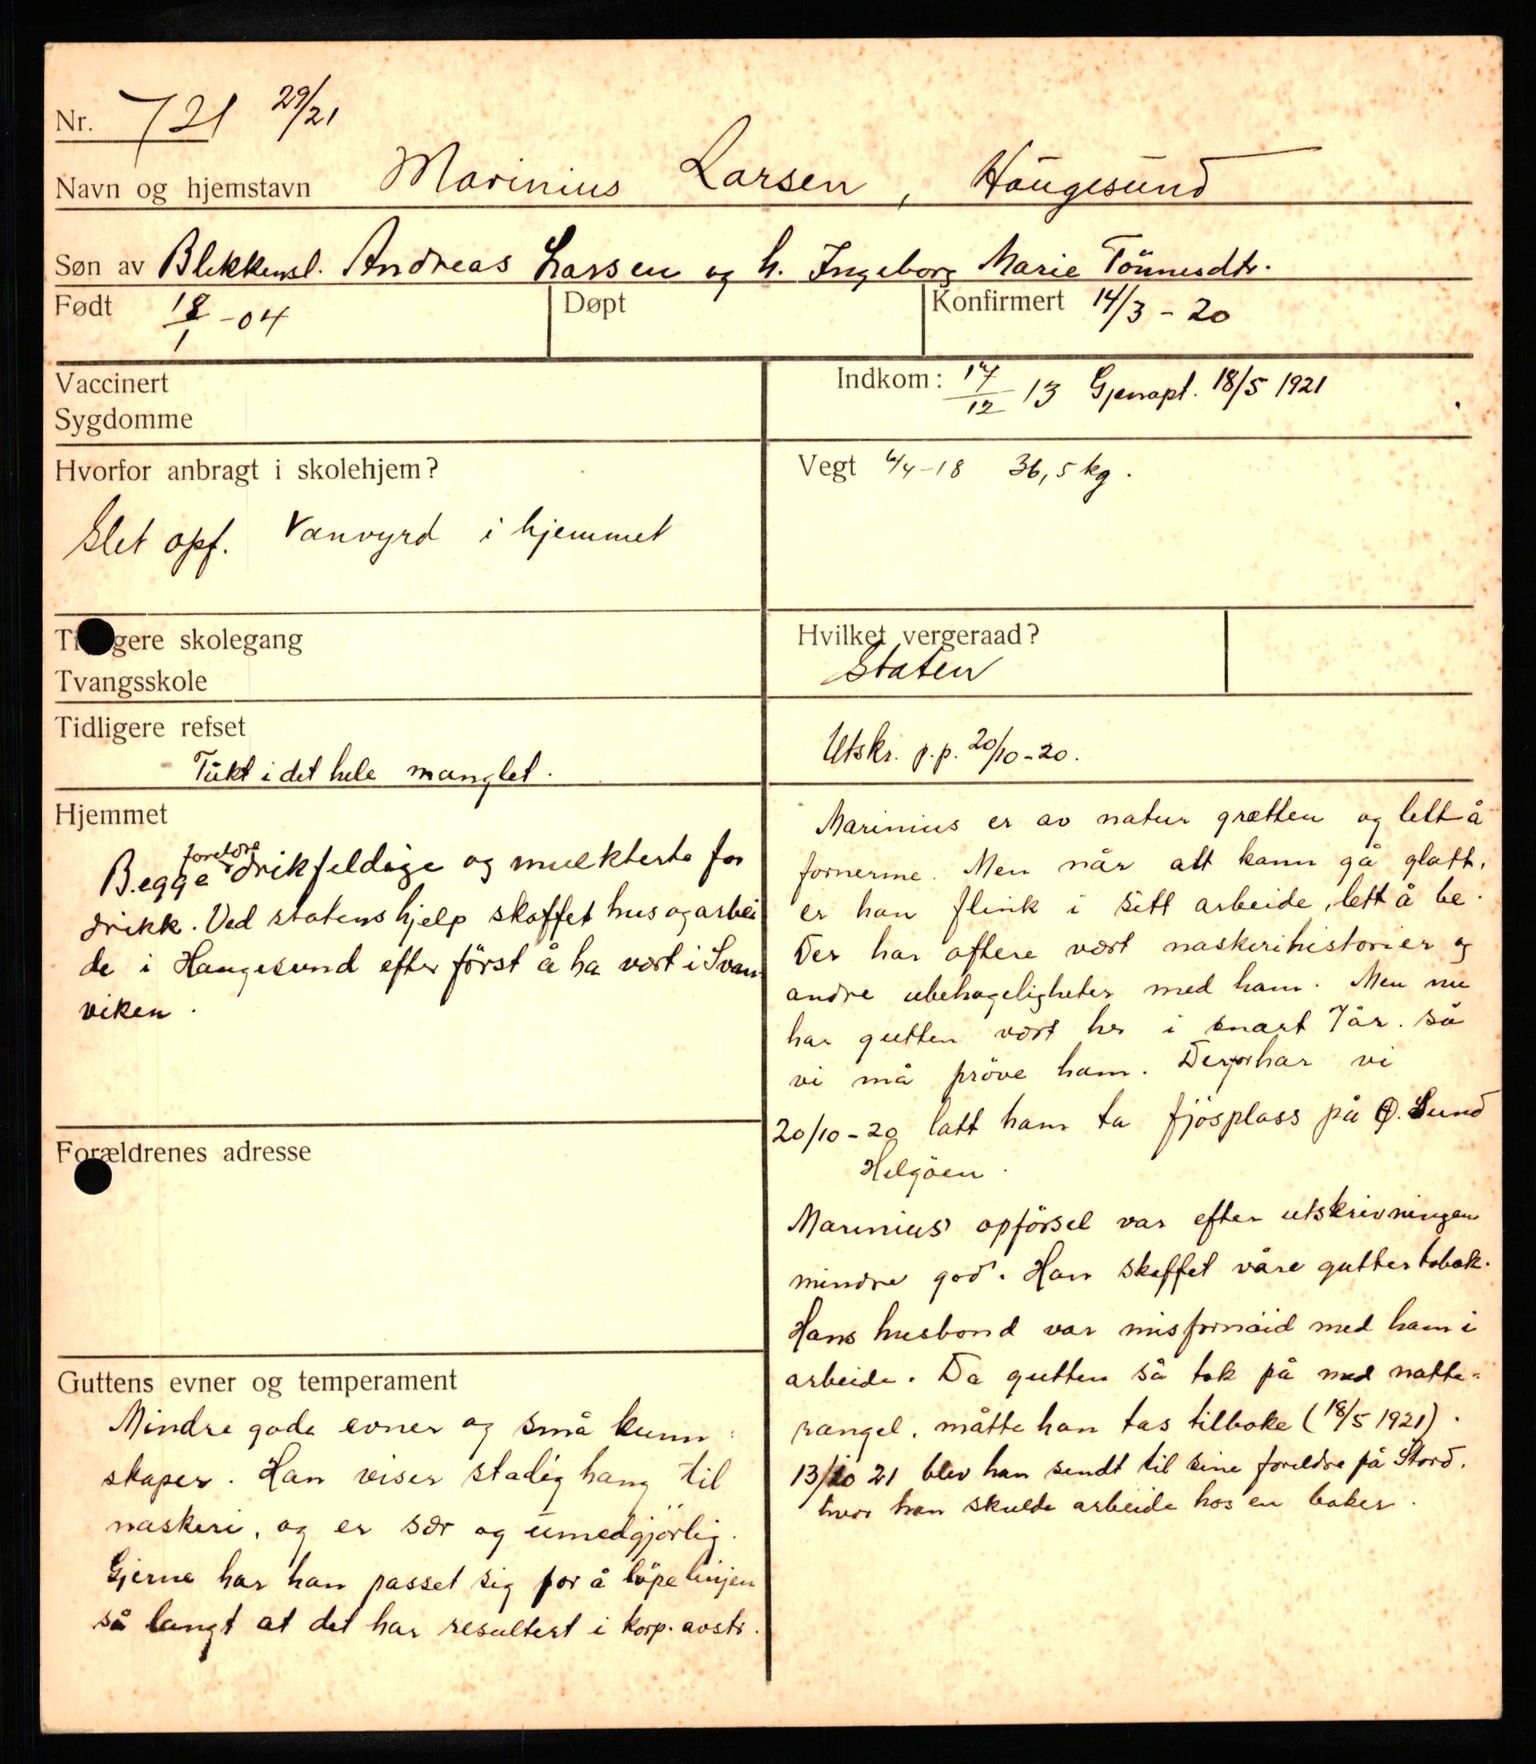 Nr. 721 29/21
Navn og hjemstavn Marinius Larsen, Haugesund
Søn av Blekkensl. Andreas Larsen og h. Ingeborg Marie Tönnesdtr.
Født 18/1-04 Døpt Konfirmert 14/3-20
Vaccinert
Sygdomme
Indkom: 17/12 13 Gjenopt. 18/5 1921
Hvorfor anbragt i skolehjem?
Slet opf. Vanvyrd i hjemmet
Vegt 4/4-18 36,5 kg.
Tidligere skolegang
Tvangsskole
Hvilket vergeraad?
Staten
Tidligere refset
Tukt i det hele manglet.
Utskr. p.p. 20/10-20.
Hjemmet
Begge foreldre drikfeldige og mulkterte for
drikk. Ved statens hjelp skaffet hus og arbei
de i Haugesund efter først å ha vært i Svan
viken.
Forældrenes adresse
Guttens evner og temperament
Mindre gode evner og små kunn-
skaper. Han viser stadig hang til
naskeri, og er sær og umedgjørlig.
Gjerne har han passet sig for å löpe linjen
så langt at det har resultert i korp. avstr.
Marinius er av natur grætten og lett å
fornerme. Men når alt kann gå glatt,
er han flink i sitt arbeide, lett å be.
Der har oftere vært naskerihistorier og
andre ubehageligheter med ham. Men nu
har gutten vært her i snart 7 år. så
vi må pröve ham. Derfor har vi
20/10-20 latt ham ta fjösplass på Ö. Lund
Helgöen.
Marinius' opförsel var efter utskrivningen
mindre god. Han skaffet våre gutter tobak.
Hans husbond var misfornöid med ham i
arbeide. Da gutten så tok på med natte-
rangel, måtte han tas tilbake (18/5 1921).
13/10 21 blev han sendt til sine foreldre på Stord,
hvor han skulde arbeide hos en baker.